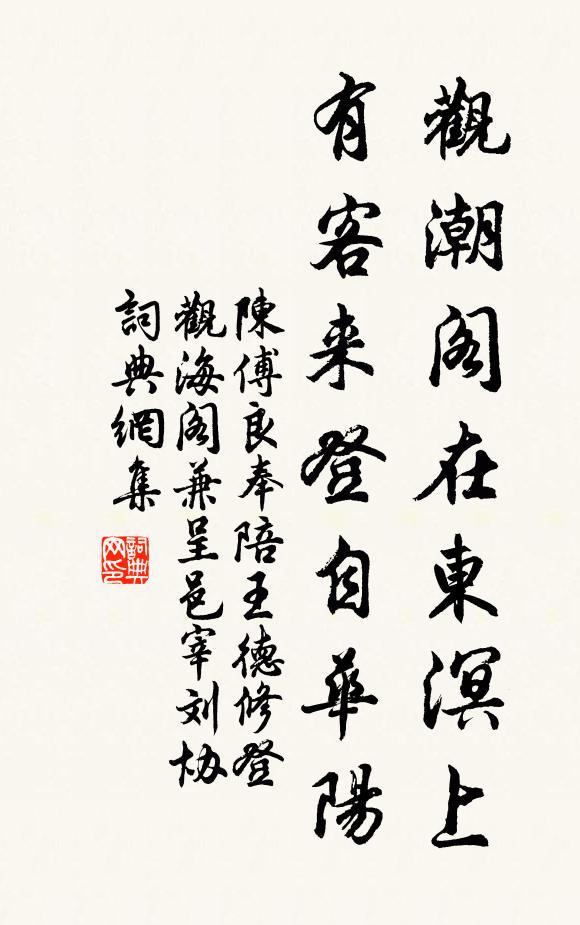 觀潮阁在東溟上
有客来登自華陽
陳傅良奉陪王德修登
觀海阁兼呈邑宰刘协
詞典網集
詞典网印